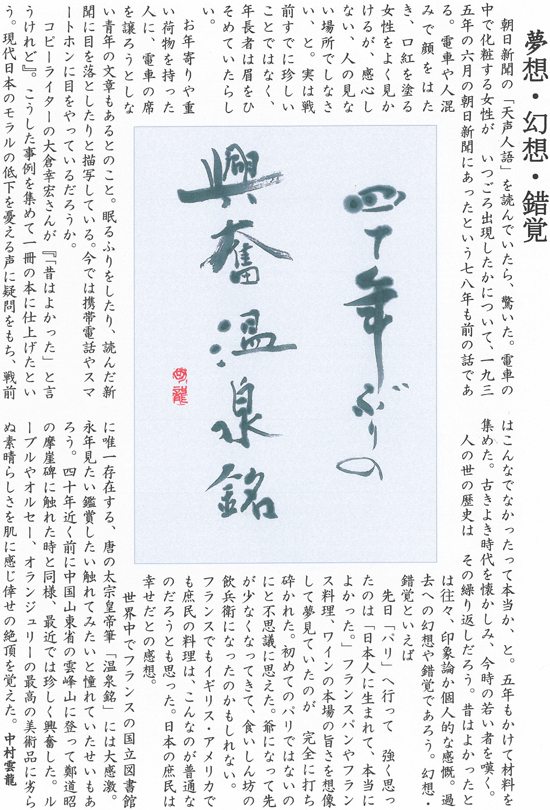 夢想・幻想・錯覚
朝日新聞の「天声人語」を読んでいたら、驚いた。電車の
中で化粧する女性が いつごろ出現したかについて、一九三
五年の六月の朝日新聞にあったという七八年も前の話であ
る。電車や人混
みで顔をはた
き、口紅を塗る
女性をよく見か
けるが、感心し
ない、人の見な
い場所でしなさ
い、と。実は戦
前すでに珍しい
ことではなく、
年長者は眉をひ
そめていたらし
い。
お年寄りや重
い荷物を持った
人に、電車の席
を譲ろうとしな
い青年の文章もあるとのこと。眠るふりをしたり、読んだ新
聞に目を落としたりと描写している。今では携帯電話やスマ
ートホンに目をやっているだろうか。
コピーライターの大倉幸宏さんが『「昔はよかった」と言
うけれど』。こうした事例を集めて一冊の本に仕上げたとい
う。現代日本のモラルの低下を憂える声に疑問をもち、戦前
四十年ぶりの
興奮温泉銘
はこんなでなかったって本当か、と。五年もかけて材料を
集めた。古きよき時代を懐かしみ、今時の若い者を嘆く。
人の世の歴史は その繰り返しだろう。昔はよかったと
は往々、印象論か個人的な感慨。過
去への幻想や錯覚であろう。幻想
錯覚といえば
先日「パリ」へ行って 強く思っ
たのは「日本人に生まれて、本当に
よかった。」フランスパンやフラン
ス料理、ワインの本場の旨さを想像
して夢見ていたのが 完全に打ち
砕かれた。初めてのパリではないの
にと不思議に思えた。爺になって先
が少なくなってきて、食いしん坊の
飲兵衛になったのかもしれない。
フランスでもイギリス・アメリカで
も庶民の料理は、こんなのが普通な
のだろうとも思った。日本の庶民は
幸せだとの感想。
世界中でフランスの国立図書館
に唯一存在する、唐の太宗皇帝筆「温泉銘」には大感激。
永年見たい鑑賞したい触れてみたいと憧れていたせいもあ
ろう。四十年近く前に中国山東省の雲峰山に登って鄭道昭
の摩崖碑に触れた時と同様、最近では珍しく興奮した。ル
ーブルやオルセー、オランジュリーの最高の美術品に劣ら
ぬ素晴らしさを肌に感じ倖せの絶頂を覚えた。 中村雲龍